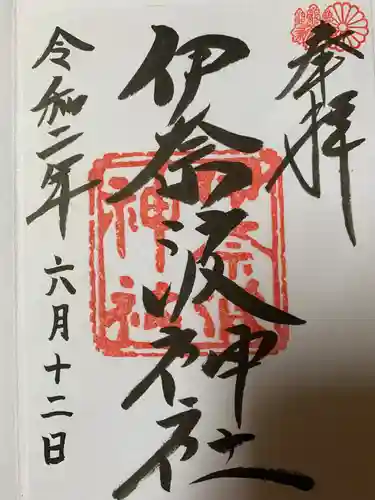 奉拝
伊奈波神社
令和二年 六月十二日
伊奈波
神社